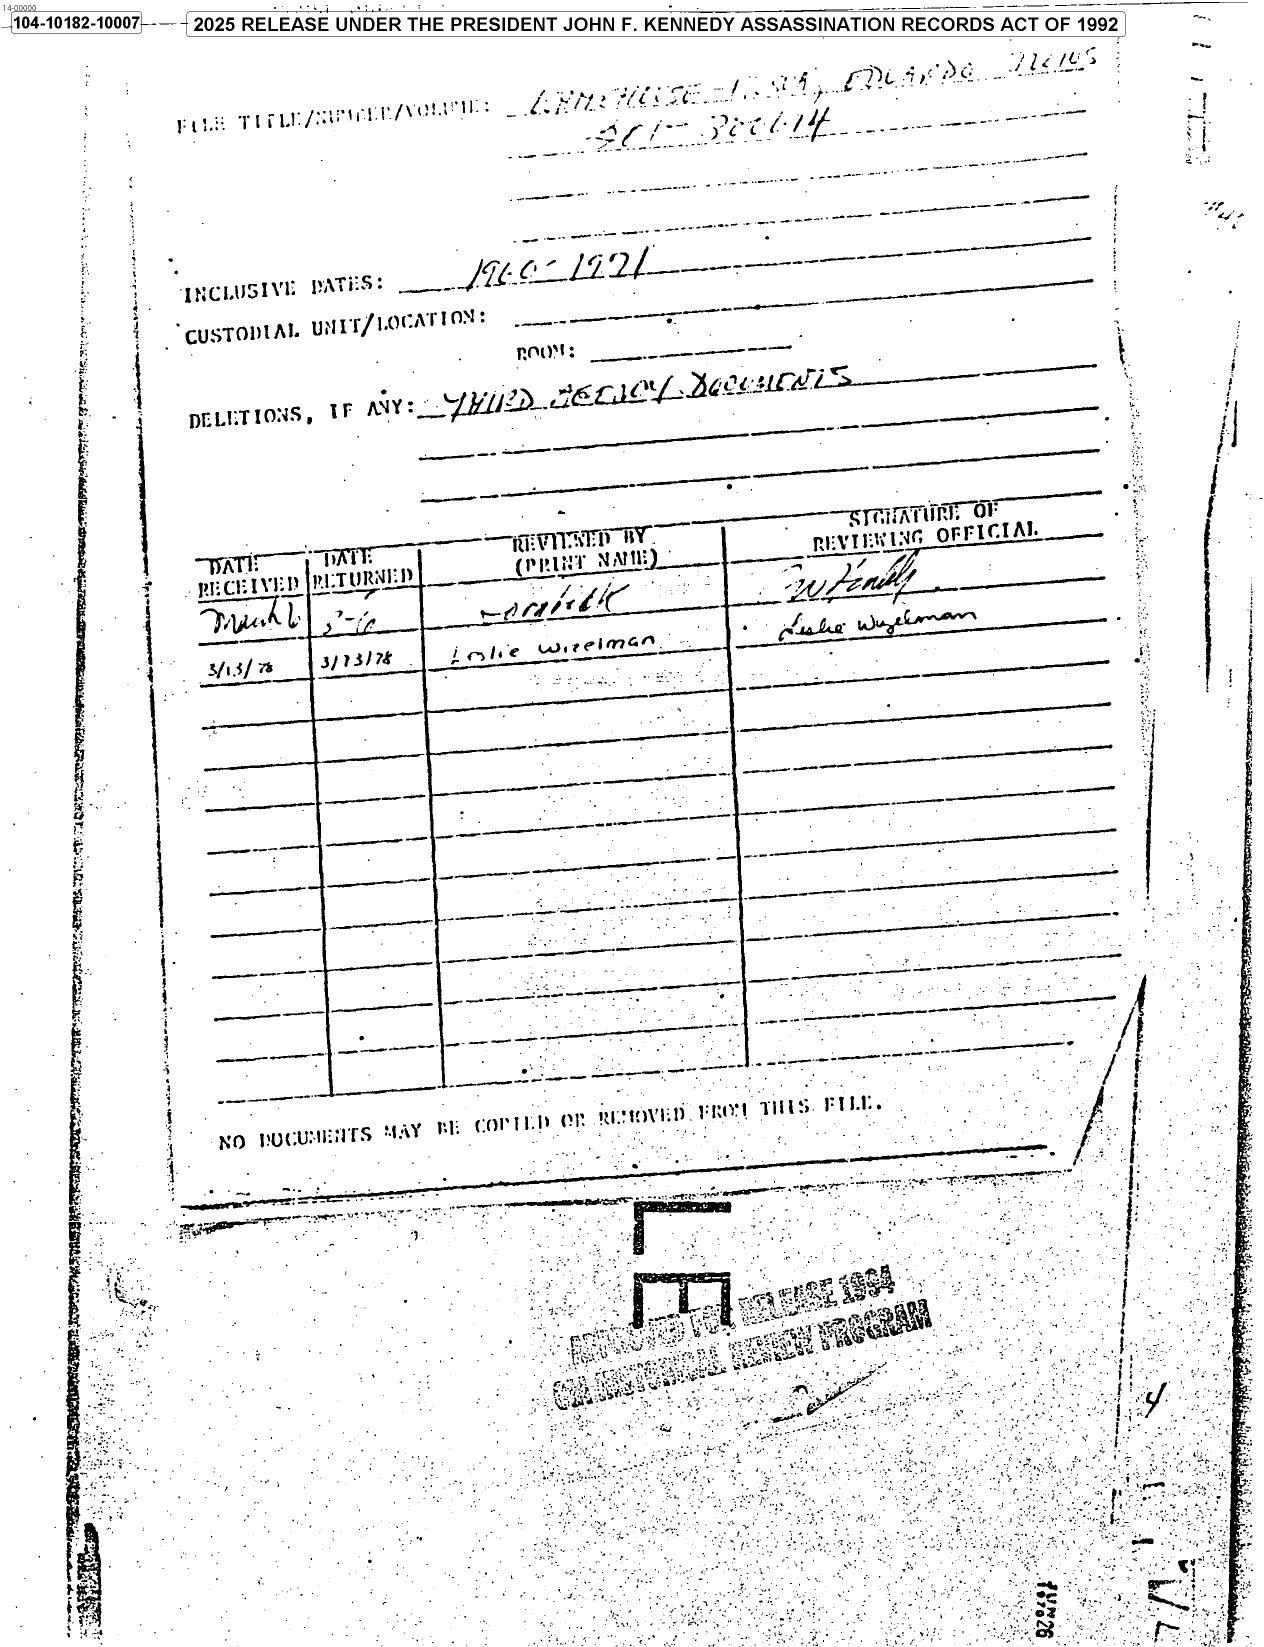 14-00000
104-10182-10007
2025 RELEASE UNDER THE PRESIDENT JOHN F. KENNEDY ASSASSINATION RECORDS ACT OF 1992
FILE TITLE/NUMBER/VOLUME:
201-300614
INCLUSIVE DATES: 1960-1971
CUSTODIAL UNIT/LOCATION:
ROOM:
DELETIONS, IF ANY: THIRD AGENCY DOCUMENTS
DATE RECEIVED
DATE RETURNED
REVIEWED BY (PRINT NAME)
SIGNATURE OF REVIEWING OFFICIAL
March 6
3/13/78 3/13/78 Leslie Wizelman Leslie Wizelman
NO DOCUMENTS MAY BE COPIED OR REMOVED FROM THIS FILE.
APPROVED FOR RELEASE 1994
CIA HISTORICAL REVIEW PROGRAM
4